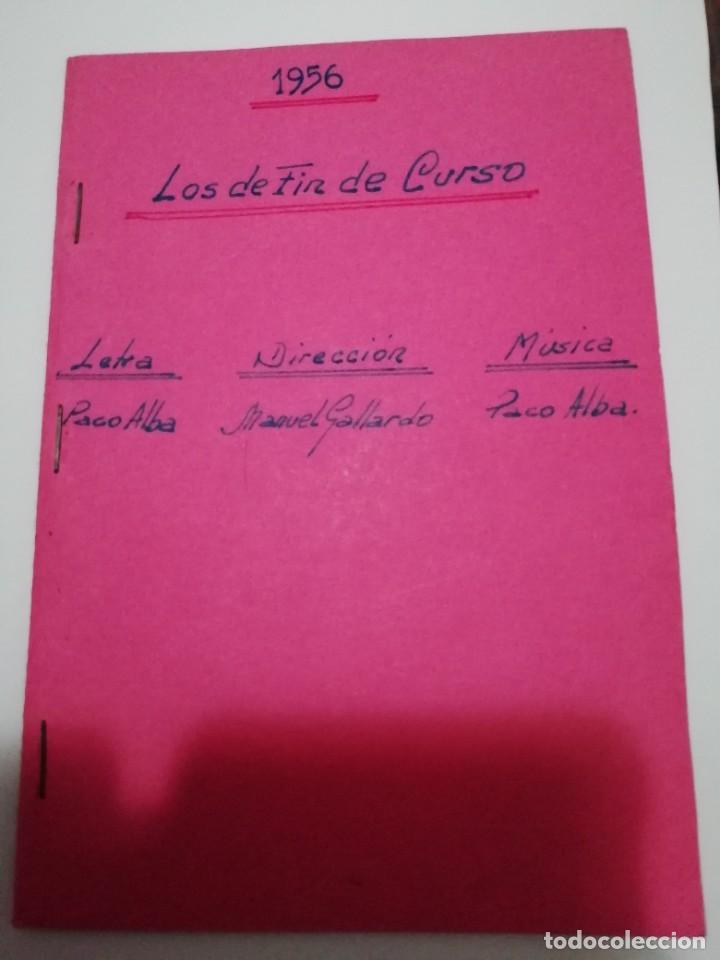 1956
Los de Fin de Curso
Letra Dirección Música
Paco Alba Manuel Gallardo Paco Alba.
todocoleccion